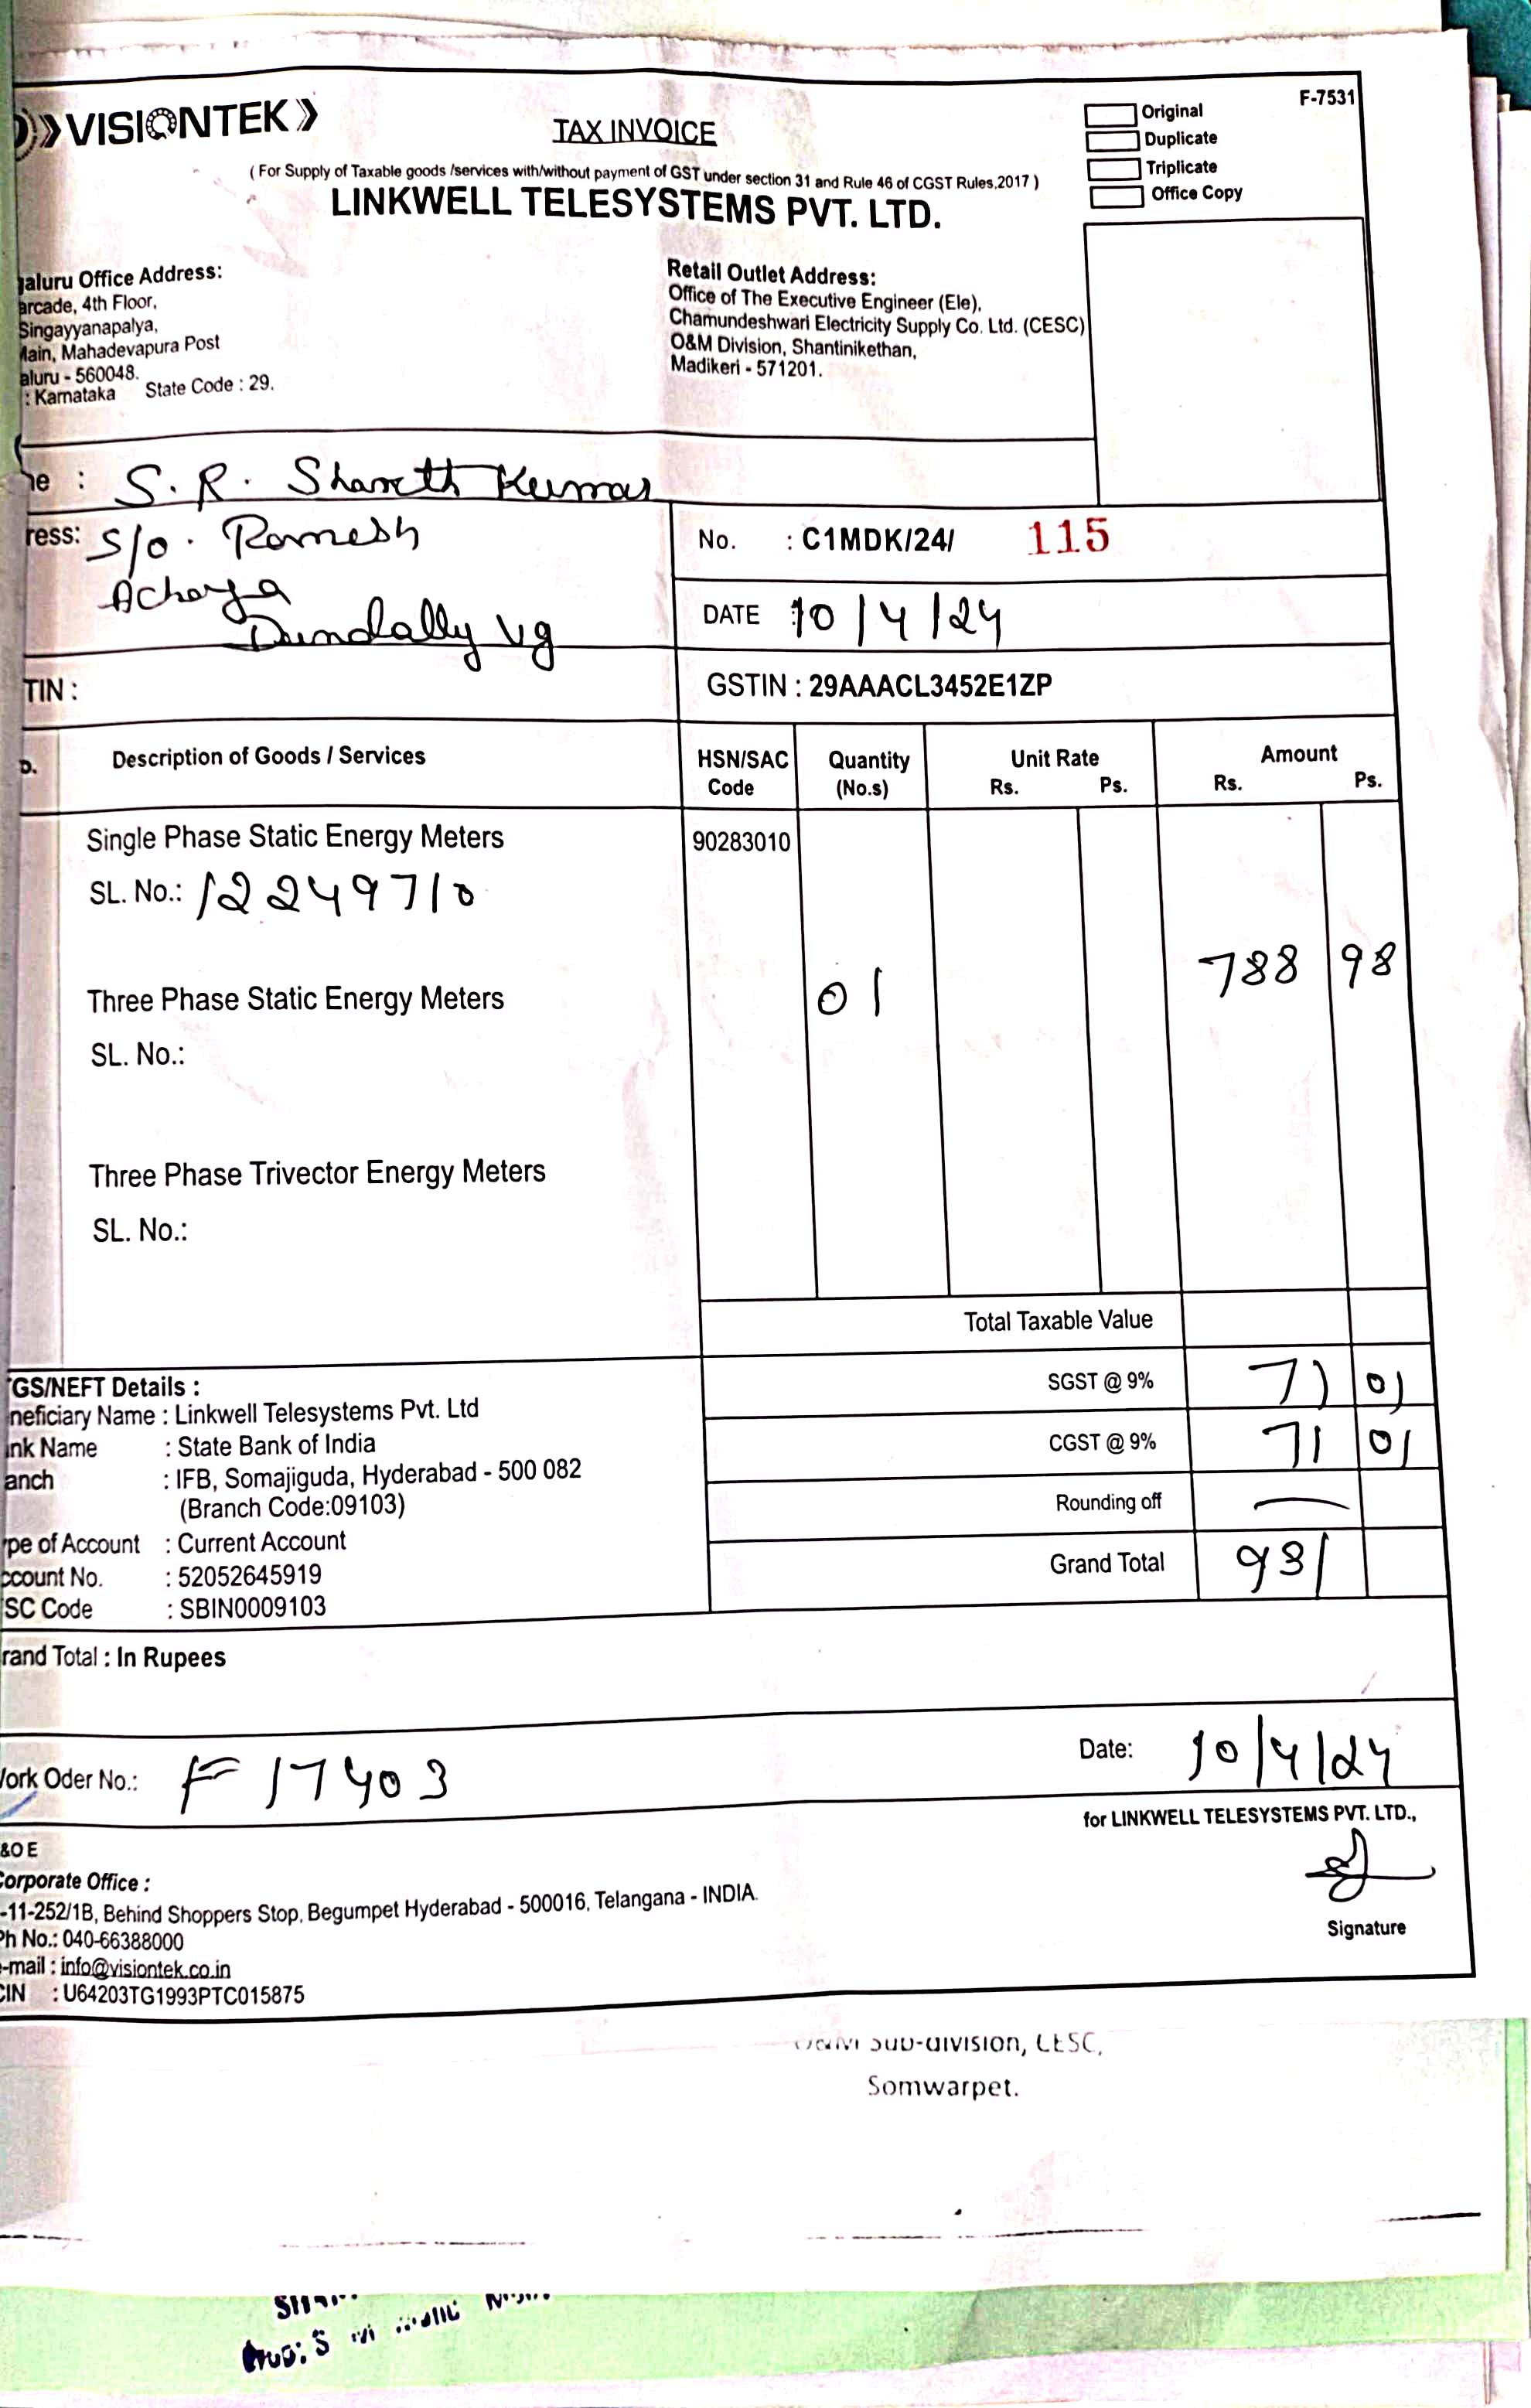 VISIONTEK
TAX INVOICE
Original
Duplicate
Triplicate
Office Copy
F-7531
( For Supply of Taxable goods /services with/without payment of GST under section 31 and Rule 46 of CGST Rules,2017 )
LINKWELL TELESYSTEMS PVT. LTD.
aluru Office Address:
arcade, 4th Floor,
Singayyanapalya,
ain, Mahadevapura Post
aluru - 560048.
: Karnataka State Code : 29.
Retail Outlet Address:
Office of The Executive Engineer (Ele),
Chamundeshwari Electricity Supply Co. Ltd. (CESC)
O&M Division, Shantinikethan,
Madikeri - 571201.
e : S. R. Shareth Kumar
ress: S/o. Ramesh
Acharya
Dundally Vg
No. : C1MDK/24/ 115
DATE 10/4/24
TIN :
GSTIN : 29AAACL3452E1ZP
o. Description of Goods / Services HSN/SAC Code Quantity (No.s) Unit Rate Rs. Ps. Amount Rs. Ps.
Single Phase Static Energy Meters 90283010
SL. No.: 12249710
01 788 98
Three Phase Static Energy Meters
SL. No.:
Three Phase Trivector Energy Meters
SL. No.:
Total Taxable Value
SGST @ 9% 71 01
CGST @ 9% 71 01
Rounding off —
Grand Total 931
GS/NEFT Details :
neficiary Name : Linkwell Telesystems Pvt. Ltd
nk Name : State Bank of India
anch : IFB, Somajiguda, Hyderabad - 500 082
(Branch Code:09103)
pe of Account : Current Account
ccount No. : 52052645919
SC Code : SBIN0009103
rand Total : In Rupees
ork Oder No.: F 17403
Date: 10/4/24
for LINKWELL TELESYSTEMS PVT. LTD.,
Signature
&O E
Corporate Office :
-11-252/1B, Behind Shoppers Stop, Begumpet Hyderabad - 500016, Telangana - INDIA.
Ph No.: 040-66388000
-mail : info@visiontek.co.in
CIN : U64203TG1993PTC015875
Sub-division, CESC,
Somwarpet.